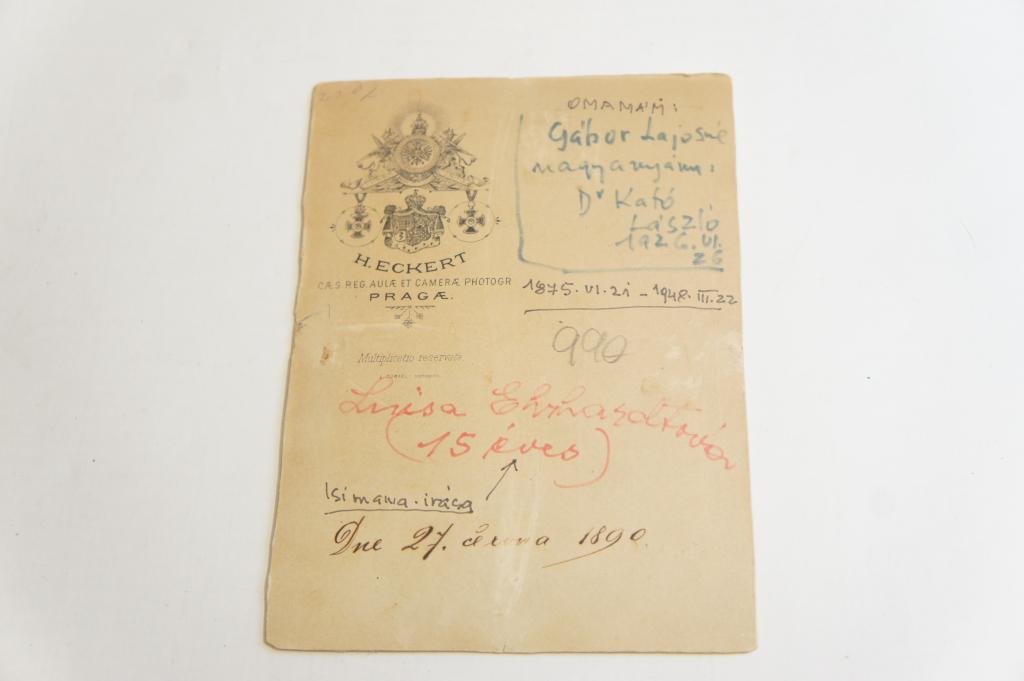 OMAMÁM:
Gábor Lajosné
nagyanyám:
Dr Kató
László
1926.VI.
26
H. ECKERT
CÆS REG. AULÆ ET CAMERÆ PHOTOGR
PRAGÆ.
1875.VI.21 – 1948.III.22
990
Multiplicatio reservata.
Luisa Ehrhardtová
(15 éves)
Isimama írása
Dne 27. června 1890.